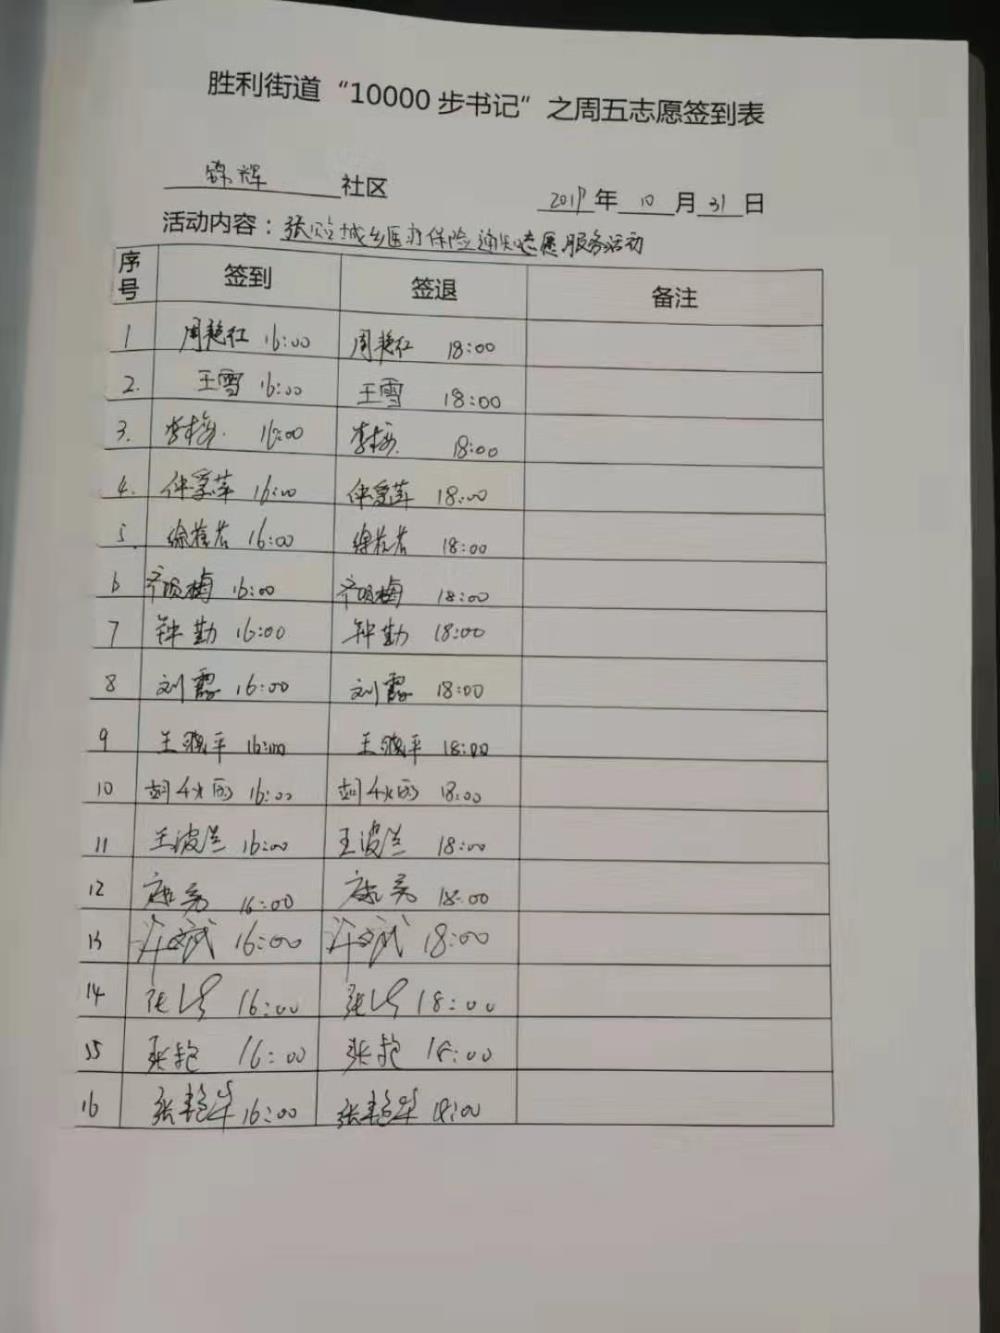 胜利街道“10000步书记”之周五志愿签到表
锦辉 社区 2019年 10 月 31 日
活动内容：张贴城乡医疗保险通知志愿服务活动
序号 签到 签退 备注
1 周艳红 16:00 周艳红 18:00
2. 王雪 16:00 王雪 18:00
3. 李梅. 16:00 李梅. 18:00
4. 16:00 18:00
5. 16:00 18:00
6 齐明梅 16:00 齐明梅 18:00
7 钟勤 16:00 钟勤 18:00
8 刘霞 16:00 刘霞 18:00
9 16:00 18:00
10 胡秋丽 16:00 胡秋丽 18:00
11 王波兰 16:00 王波兰 18:00
12 16:00 18:00
13 16:00 18:00
14 16:00 18:00
15 张艳 16:00 张艳 18:00
16 张艳华 16:00 张艳华 18:00